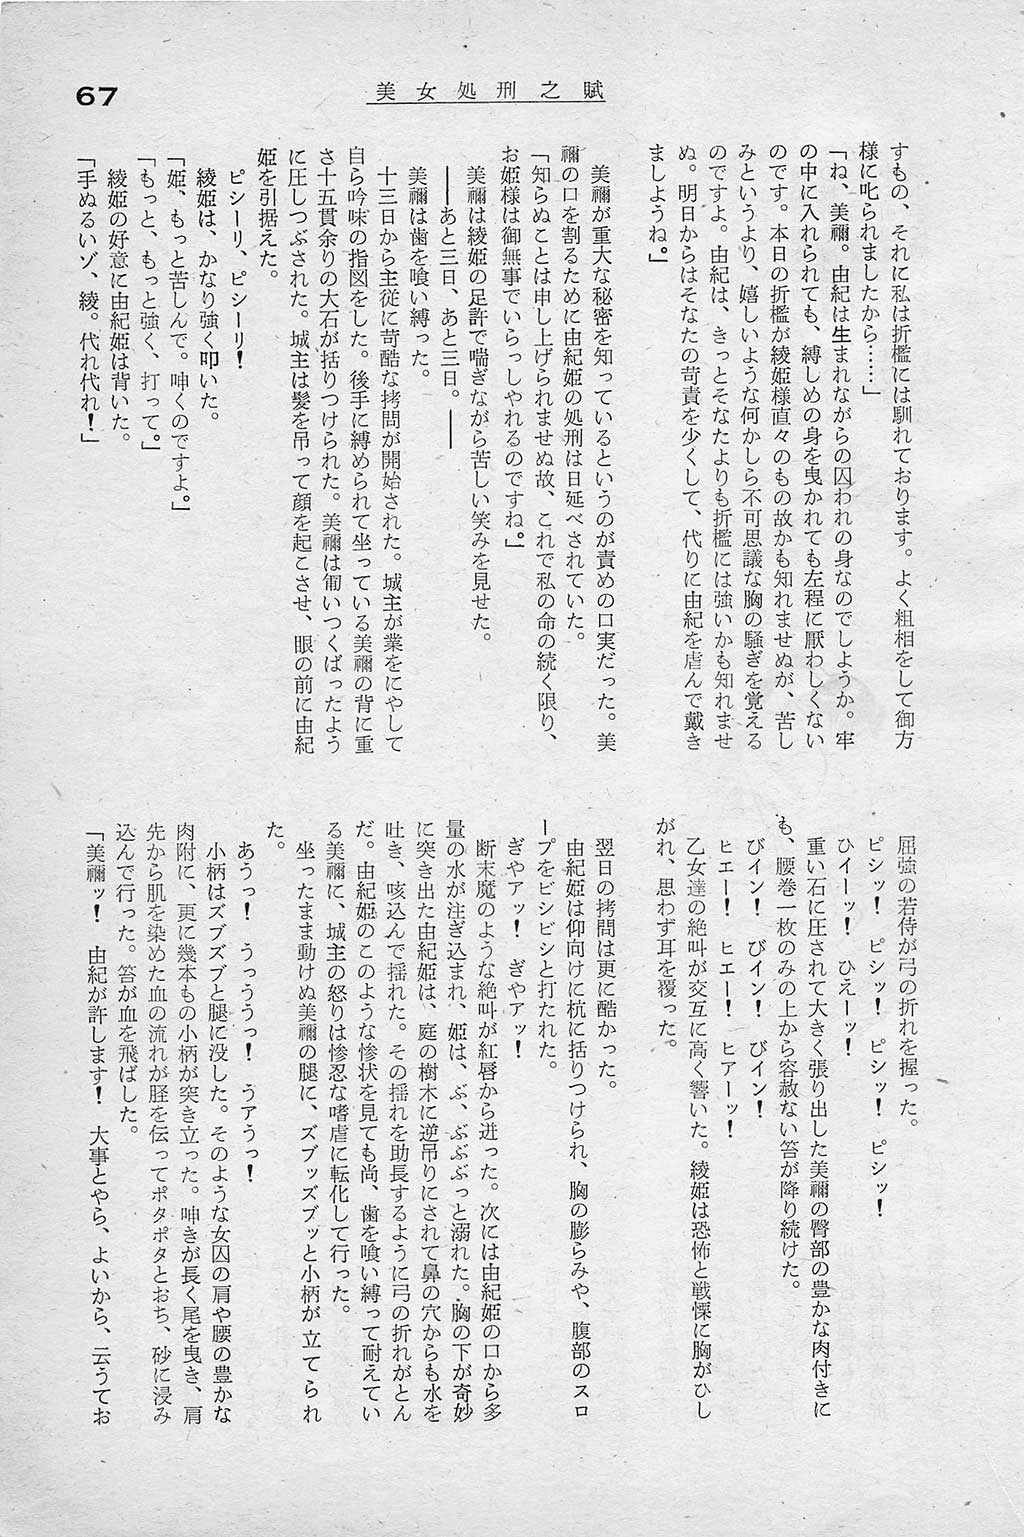 67
美女処刑之賦
すもの、それに私は折檻には馴れております。よく粗相をして御方
様に叱られましたから……」
「ね、美禰。由紀は生まれながらの囚われの身なのでしようか。牢
の中に入れられても、縛しめの身を曳かれても左程に厭わしくない
のです。本日の折檻が綾姫様直々のもの故かも知れませぬが、苦し
みというより、嬉しいような何かしら不可思議な胸の騒ぎを覚える
のですよ。由紀は、きっとそなたよりも折檻には強いかも知れませ
ぬ。明日からはそなたの苛責を少くして、代りに由紀を虐んで戴き
ましようね。」
美禰が重大な秘密を知っているというのが責めの口実だった。美
禰の口を割るために由紀姫の処刑は日延べされていた。
「知らぬことは申し上げられませぬ故、これで私の命の続く限り、
お姫様は御無事でいらっしやれるのですね。」
美禰は綾姫の足許で喘ぎながら苦しい笑みを見せた。
――あと三日、あと三日。――
美禰は歯を喰い縛った。
十三日から主従に苛酷な拷問が開始された。城主が業をにやして
自ら吟味の指図をした。後手に縛められて坐っている美禰の背に重
さ十五貫余りの大石が括りつけられた。美禰は匍いつくばったよう
に圧しつぶされた。城主は髪を吊って顔を起こさせ、眼の前に由紀
姫を引据えた。
ピシーリ、ピシーリ！
綾姫は、かなり強く叩いた。
「姫、もっと苦しんで。呻くのですよ。」
「もっと、もっと強く、打って。」
綾姫の好意に由紀姫は背いた。
「手ぬるいゾ、綾。代れ代れ！」
屈強の若侍が弓の折れを握った。
ピシッ！　ピシッ！　ピシッ！　ピシッ！
ひイーッ！　ひえーッ！
重い石に圧されて大きく張り出した美禰の臀部の豊かな肉付きに
も、腰巻一枚のみの上から容赦ない笞が降り続けた。
びイン！　びイン！　びイン！
ヒエー！　ヒエー！　ヒアーッ！
乙女達の絶叫が交互に高く響いた。綾姫は恐怖と戦慄に胸がひし
がれ、思わず耳を覆った。
翌日の拷問は更に酷かった。
由紀姫は仰向けに杭に括りつけられ、胸の膨らみや、腹部のスロ
ープをビシビシと打たれた。
ぎやアッ！　ぎやアッ！
断末魔のような絶叫が紅唇から迸った。次には由紀姫の口から多
量の水が注ぎ込まれ、姫は、ぶ、ぶぶぶっと溺れた。胸の下が奇妙
に突き出た由紀姫は、庭の樹木に逆吊りにされて鼻の穴からも水を
吐き、咳込んで揺れた。その揺れを助長するように弓の折れがとん
だ。由紀姫のこのような惨状を見ても尚、歯を喰い縛って耐えてい
る美禰に、城主の怒りは惨忍な嗜虐に転化して行った。
坐ったまま動けぬ美禰の腿に、ズブッズブッと小柄が立てられ
た。
あうっ！　うっううっ！　うアうっ！
小柄はズブズブと腿に没した。そのような女囚の肩や腰の豊かな
肉附に、更に幾本もの小柄が突き立った。呻きが長く尾を曳き、肩
先から肌を染めた血の流れが脛を伝ってポタポタとおち、砂に浸み
込んで行った。笞が血を飛ばした。
「美禰ッ！　由紀が許します！　大事とやら、よいから、云うてお